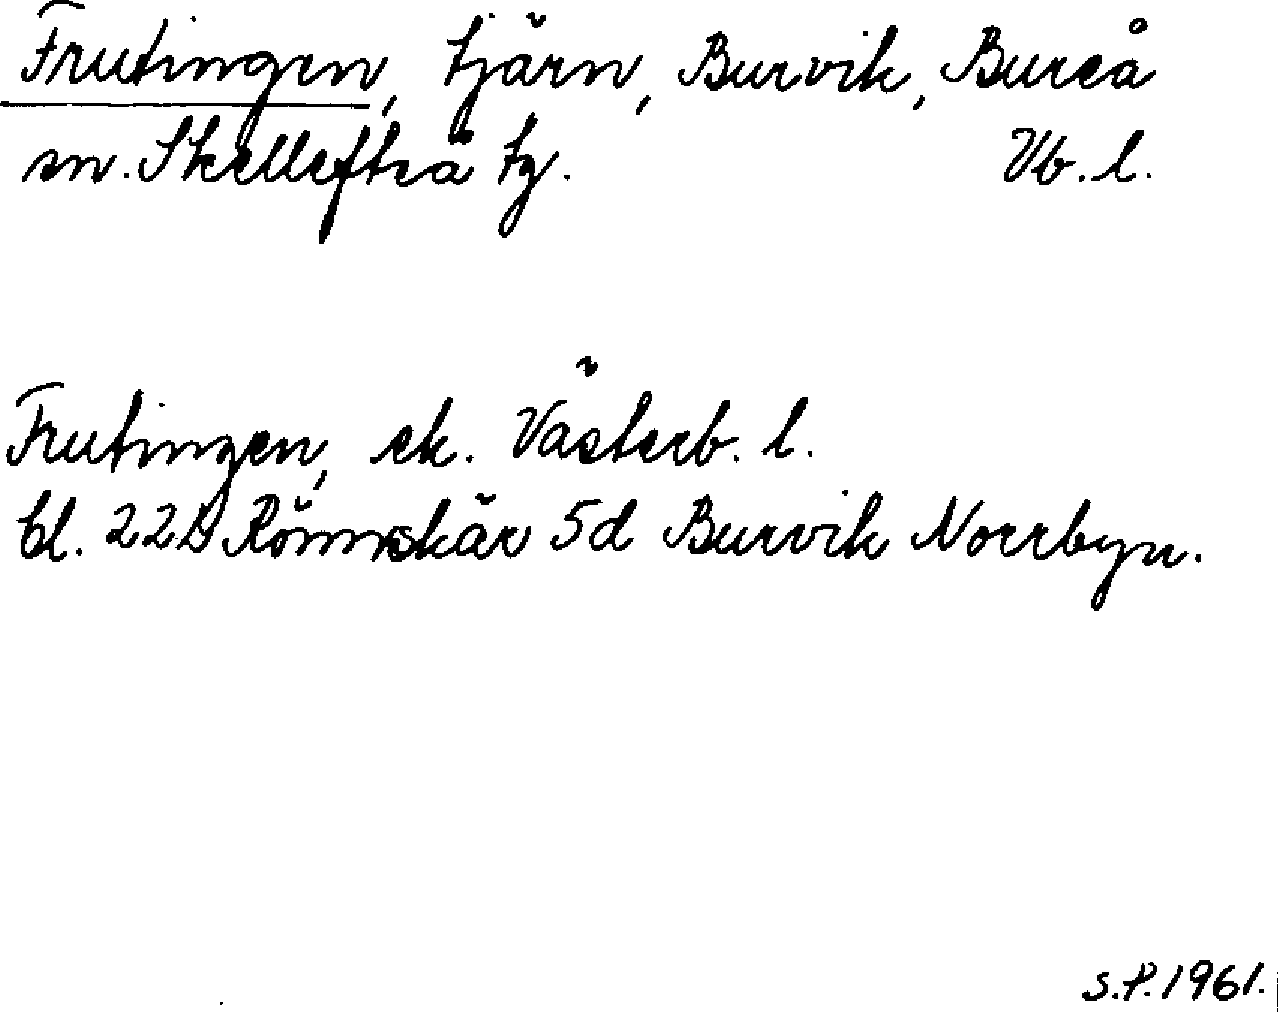 Frutingen, tjärn, Burvik, Bureå
sn. Skellefteå tg. Vb. l.
Frutingen, ek. Västerb. l.
bl. 22D Rönnskär 5d Burvik Norrbyn.
S.P. 1961.